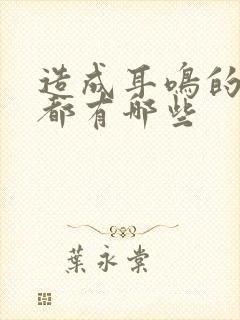 造成耳鸣的
都有哪些
葉永棠